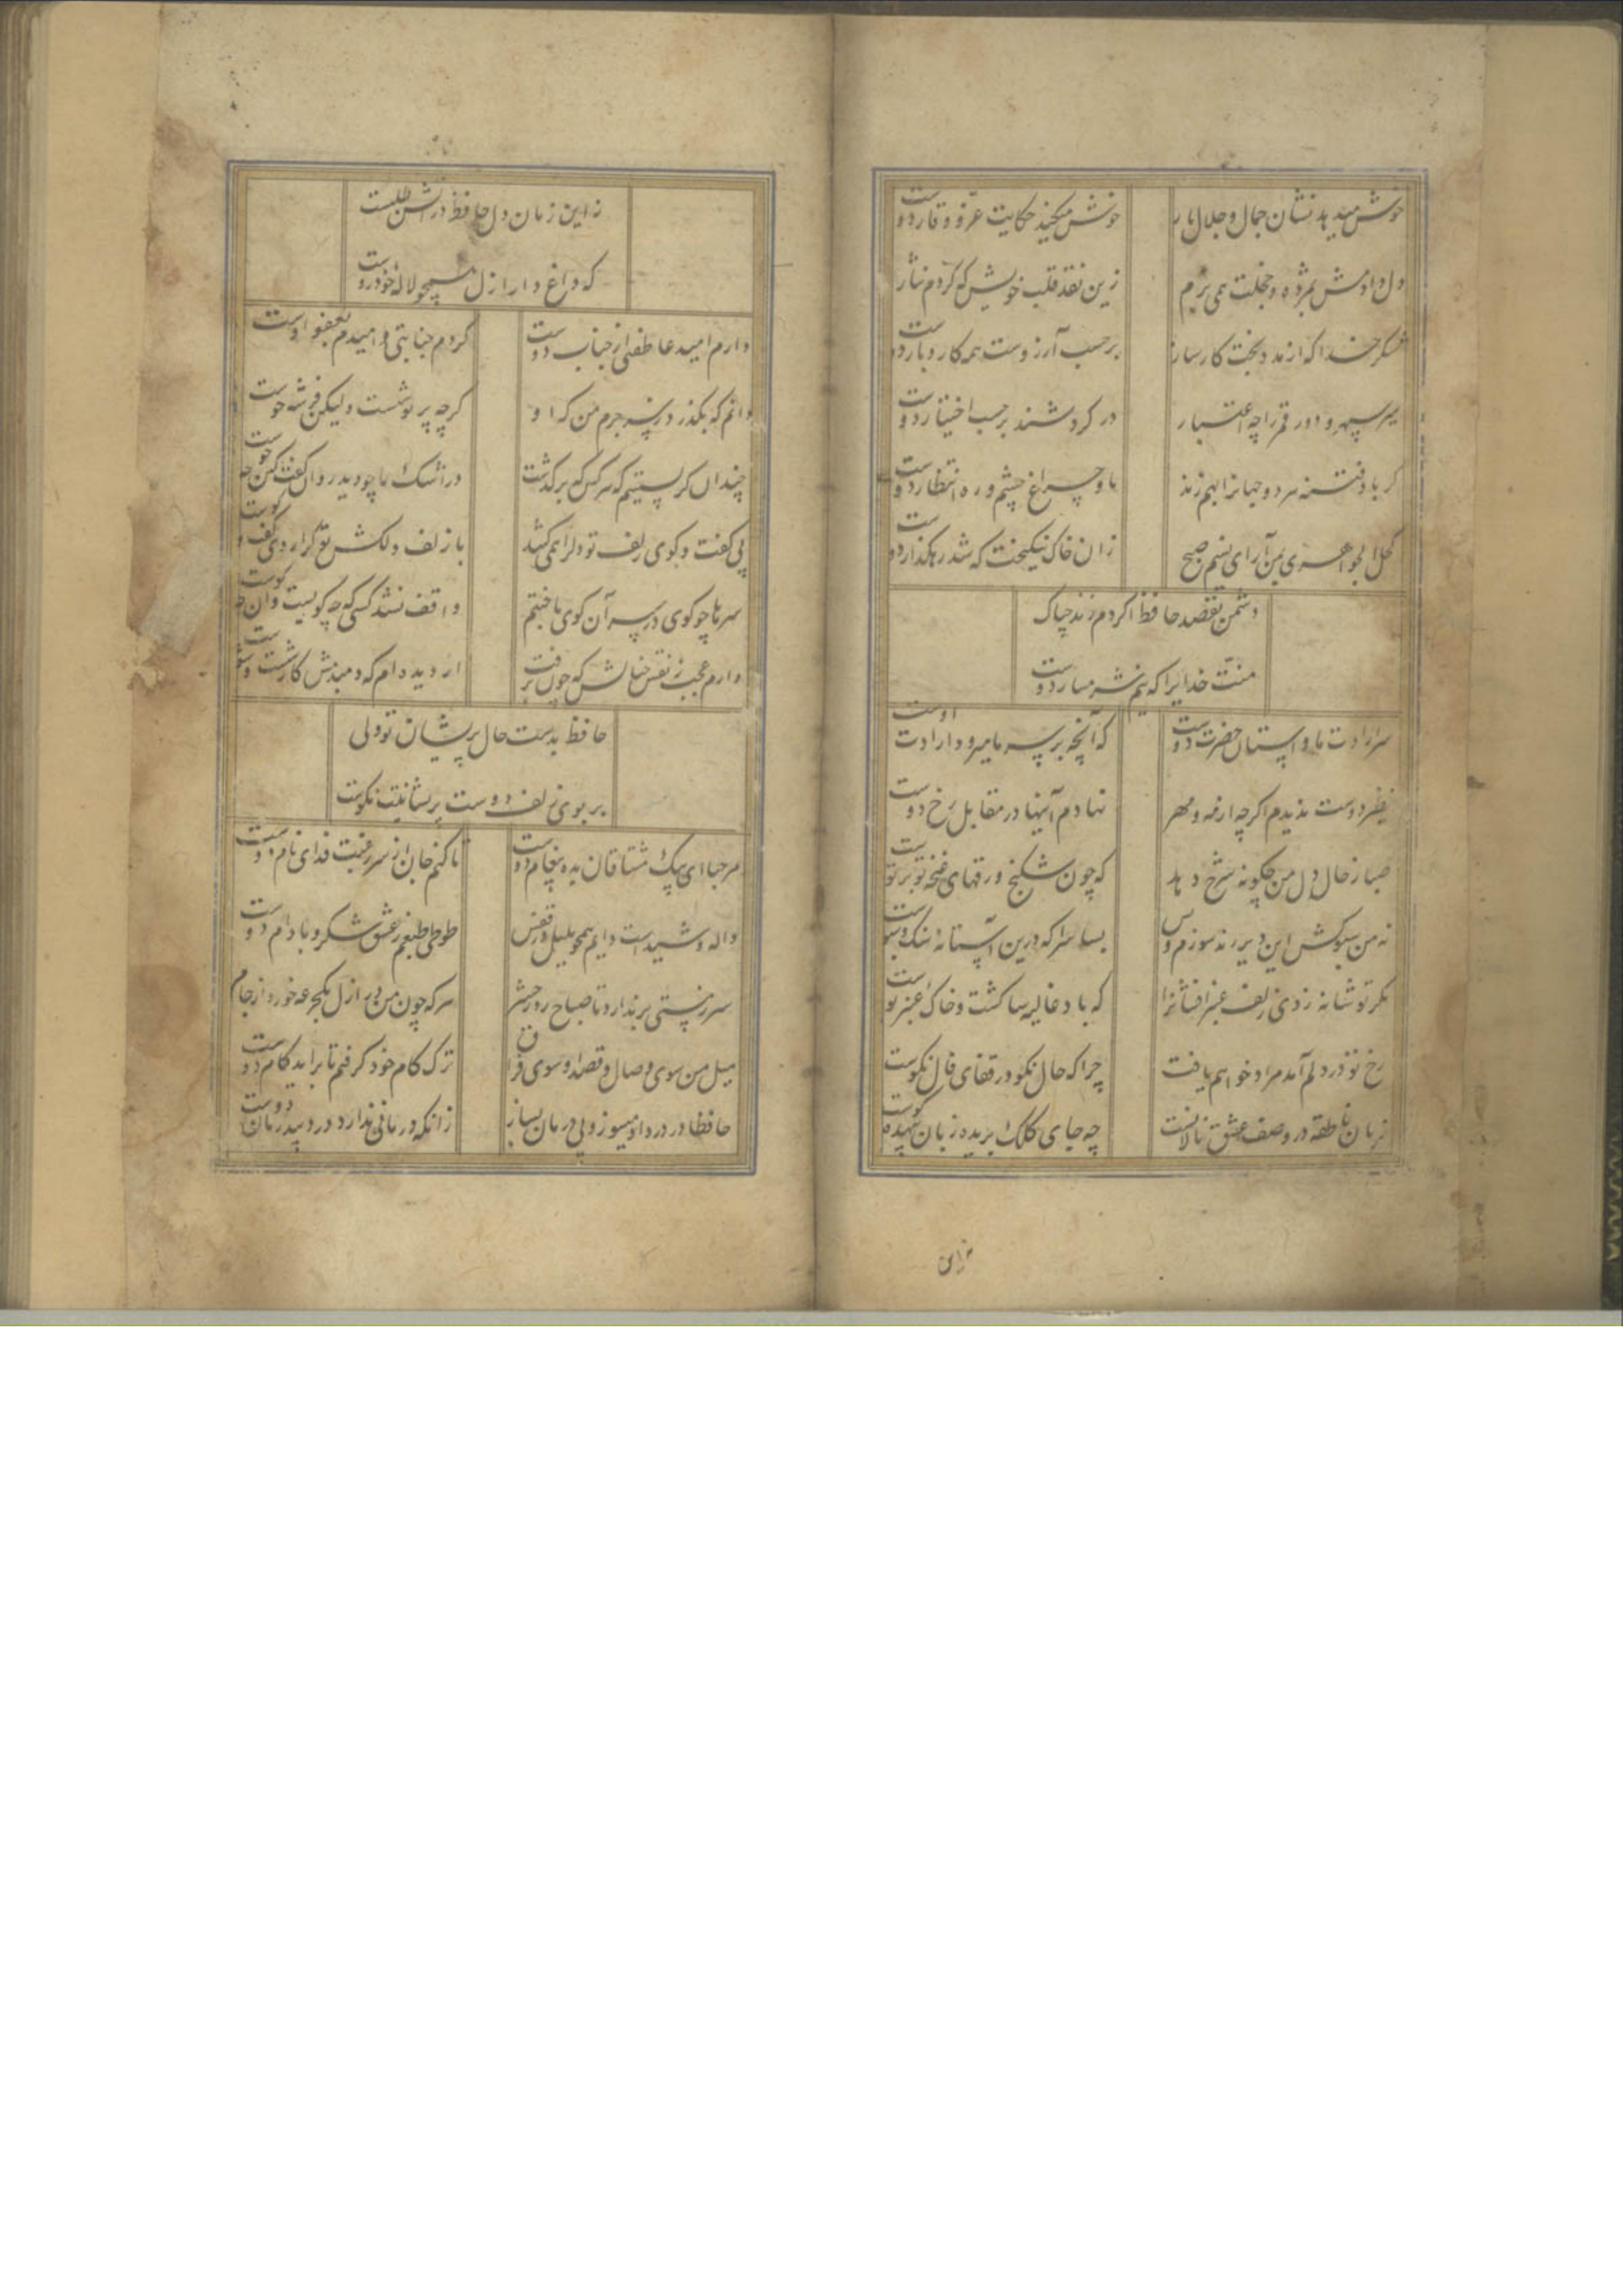 خوش میدهد نشان جمال و جلال یار
خوش میکند حکایت عز و وقار دوست
دل دادمش بمژده و خجلت همی برم
زین نقد قلب خویش که کردم نثار
شکر خدا که از مدد بخت کارساز
بر حسب آرزوست همه کار و بار دوست
سیر سپهر و دور قمر را چه اعتبار
در کردشند بر حسب اختیار دوست
کر باد فتنه هر دو جهانرا بهم زند
ما و چراغ چشم و ره انتظار دوست
کحل الجواهری بمن آر ای نسیم صبح
زان خاک نیکبخت که شد رهکذار دوست
دشمن بقصد حافظ اکر دم زند چه باک
منت خدایرا که نیم شرمسار دوست
سر ارادت ما و آستان حضرت دوست
که آنچه بر سر ما میرود ارادت اوست
نظیر دوست ندیدم اکرچه از مه و مهر
نهادم آینها در مقابل رخ دوست
صبا ز حال دل من چکونه شرح دهد
که چون شکنج ورقهای غنچه تو بر توست
نه من سبوکش این دیر رندسوزم و بس
بسا سرا که درین آستانه سنک و سبوست
مکر تو شانه زدی زلف عنبرافشانرا
که باد غالیه سا کشت و خاک عنبر بوست
رخ تو در دلم آمد مراد خواهم یافت
چرا که حال نکو در قفای فال نکوست
زبان ناطقه در وصف عشق نالانست
چه جای کلک بریده زبان بیهده کوست
نه این
نه این زمان دل حافظ در آتش طلبست
که داغ دار ازل همچو لاله خودروست
دارم امید عاطفتی از جناب دوست
کردم جنایتی و امیدم بعفو اوست
دانم که بکذرد ز سر جرم من که او
کرچه پریوشست ولیکن فرشته خوست
چندان کریستیم که هر کس که برکذشت
در اشک ما چو دید روان کفت کین چه جوست
بی کفت و کوی زلف تو دلرا همی کشد
با زلف دلکش تو کرا روی کفت و کوست
سرها چو کوی در سر آن کوی باختیم
واقف نشد کسی که چه کویست و آن چه کوست
دارم عجب ز نقش خیالش که چون نرفت
از دیده ام که دمبدمش کار شست و شوست
حافظ بدست حال پریشان تو ولی
بر بوی زلف دوست پریشانیت نکوست
مرحبا ای پیک مشتاقان بده پیغام دوست
تا کنم جان از سر رغبت فدای نام دوست
واله و شیداست دایم همچو بلبل در قفس
طوطی طبعم ز عشق شکر و بادام دوست
سر ز مستی برندارد تا صباح روز حشر
هر که چون من در ازل یکجرعه خورد از جام
میل من سوی وصال و قصد او سوی فراق
ترک کام خود کرفتم تا براید کام دوست
حافظا در درد او میسوز و بی درمان بساز
زانکه درمانی ندارد درد بیدرمان دوست